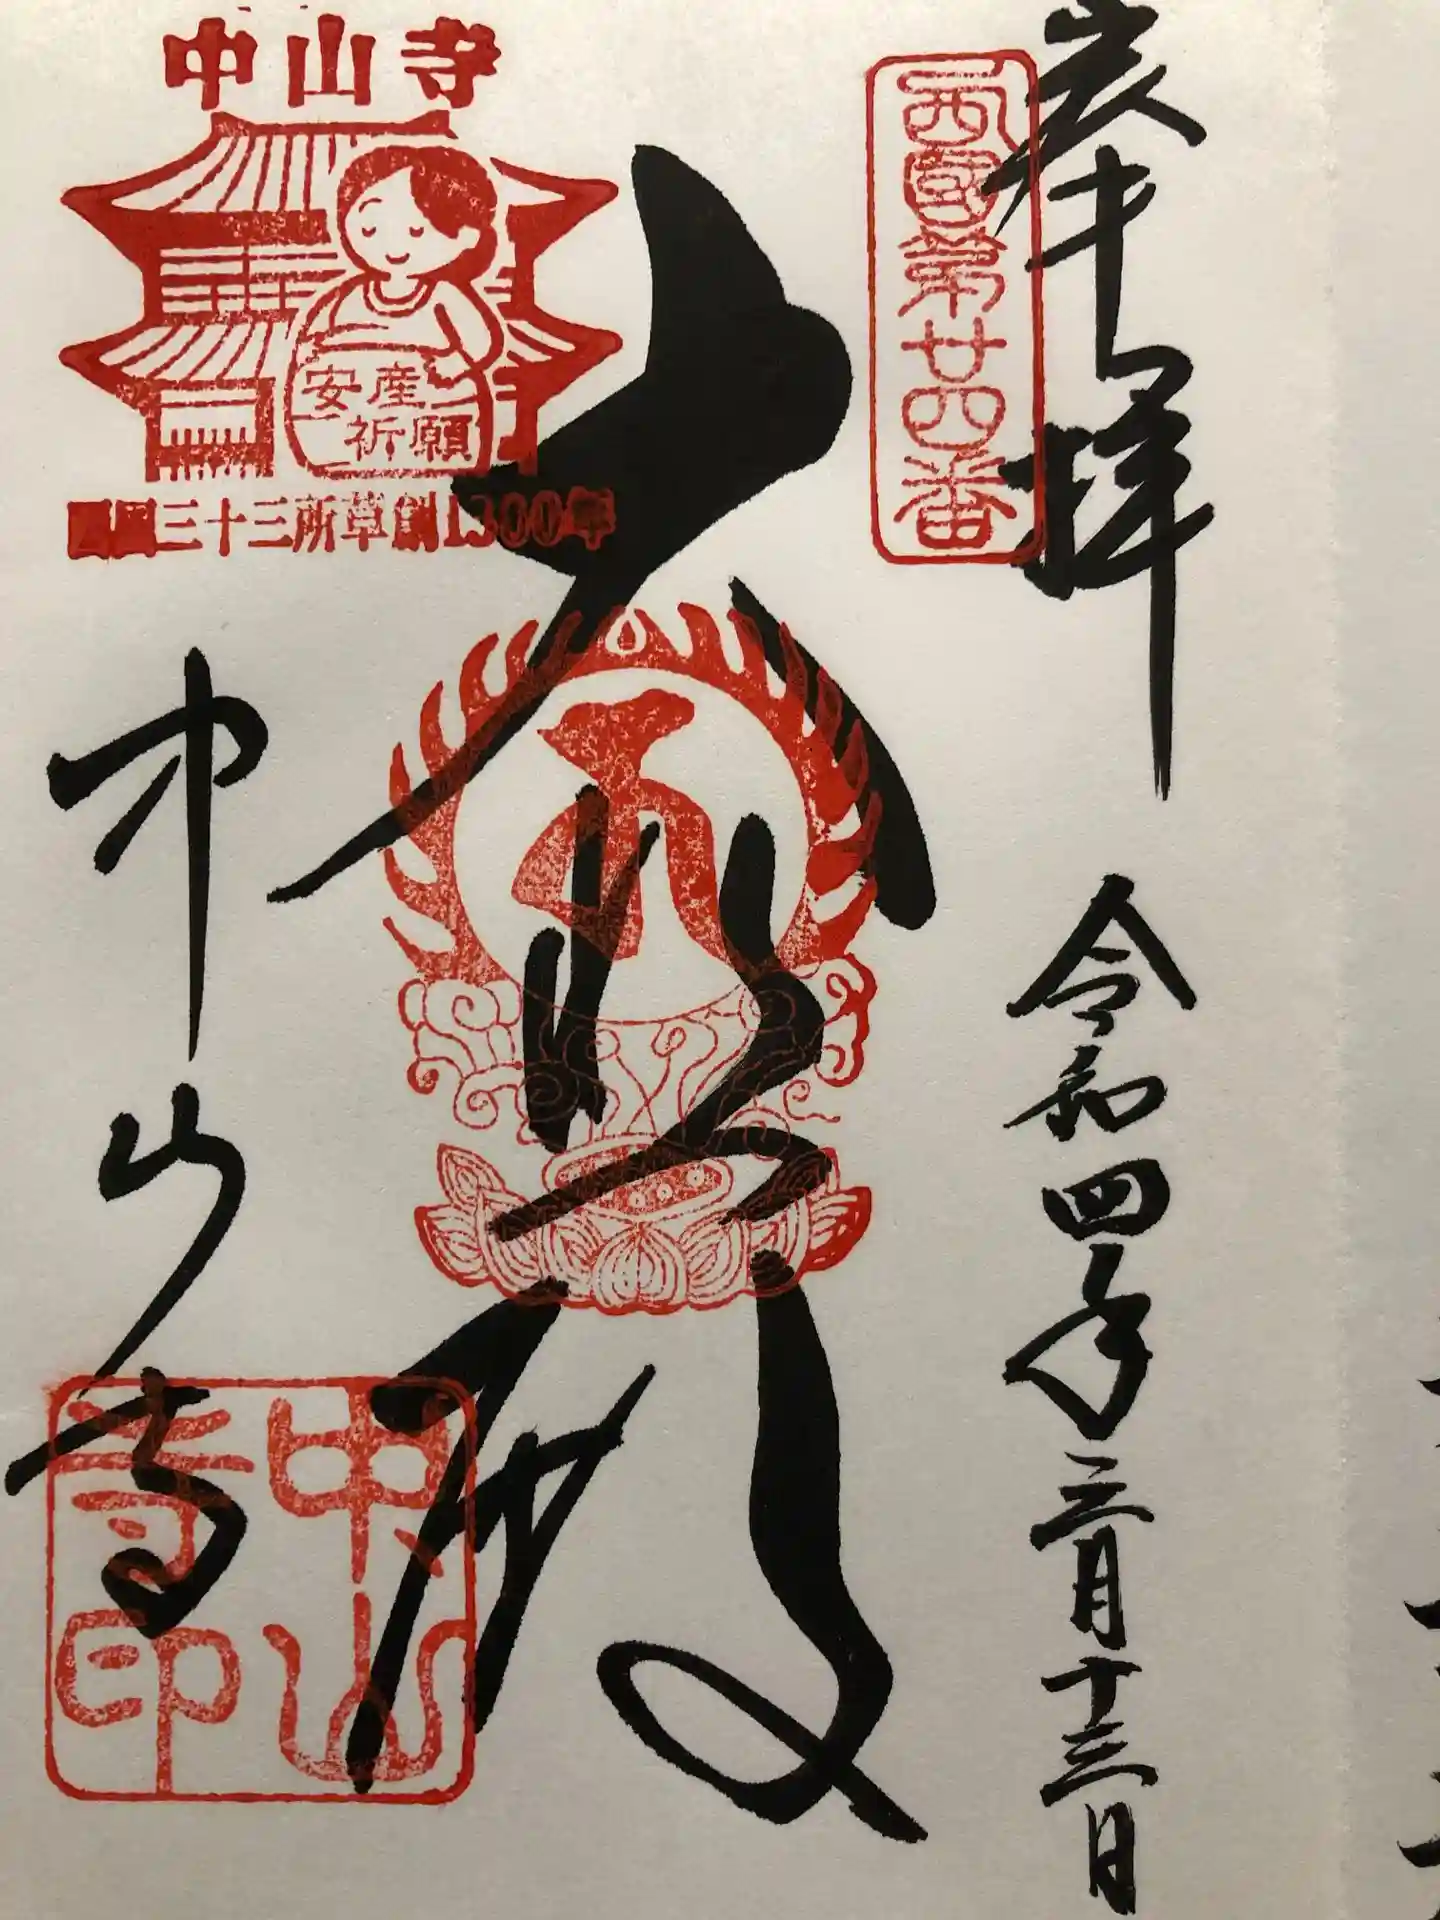 奉拝
令和四年三月十三日
西國第廿四番
大悲殿
中山寺
安産
祈願
西国三十三所草創1300年
中山寺
中山寺印